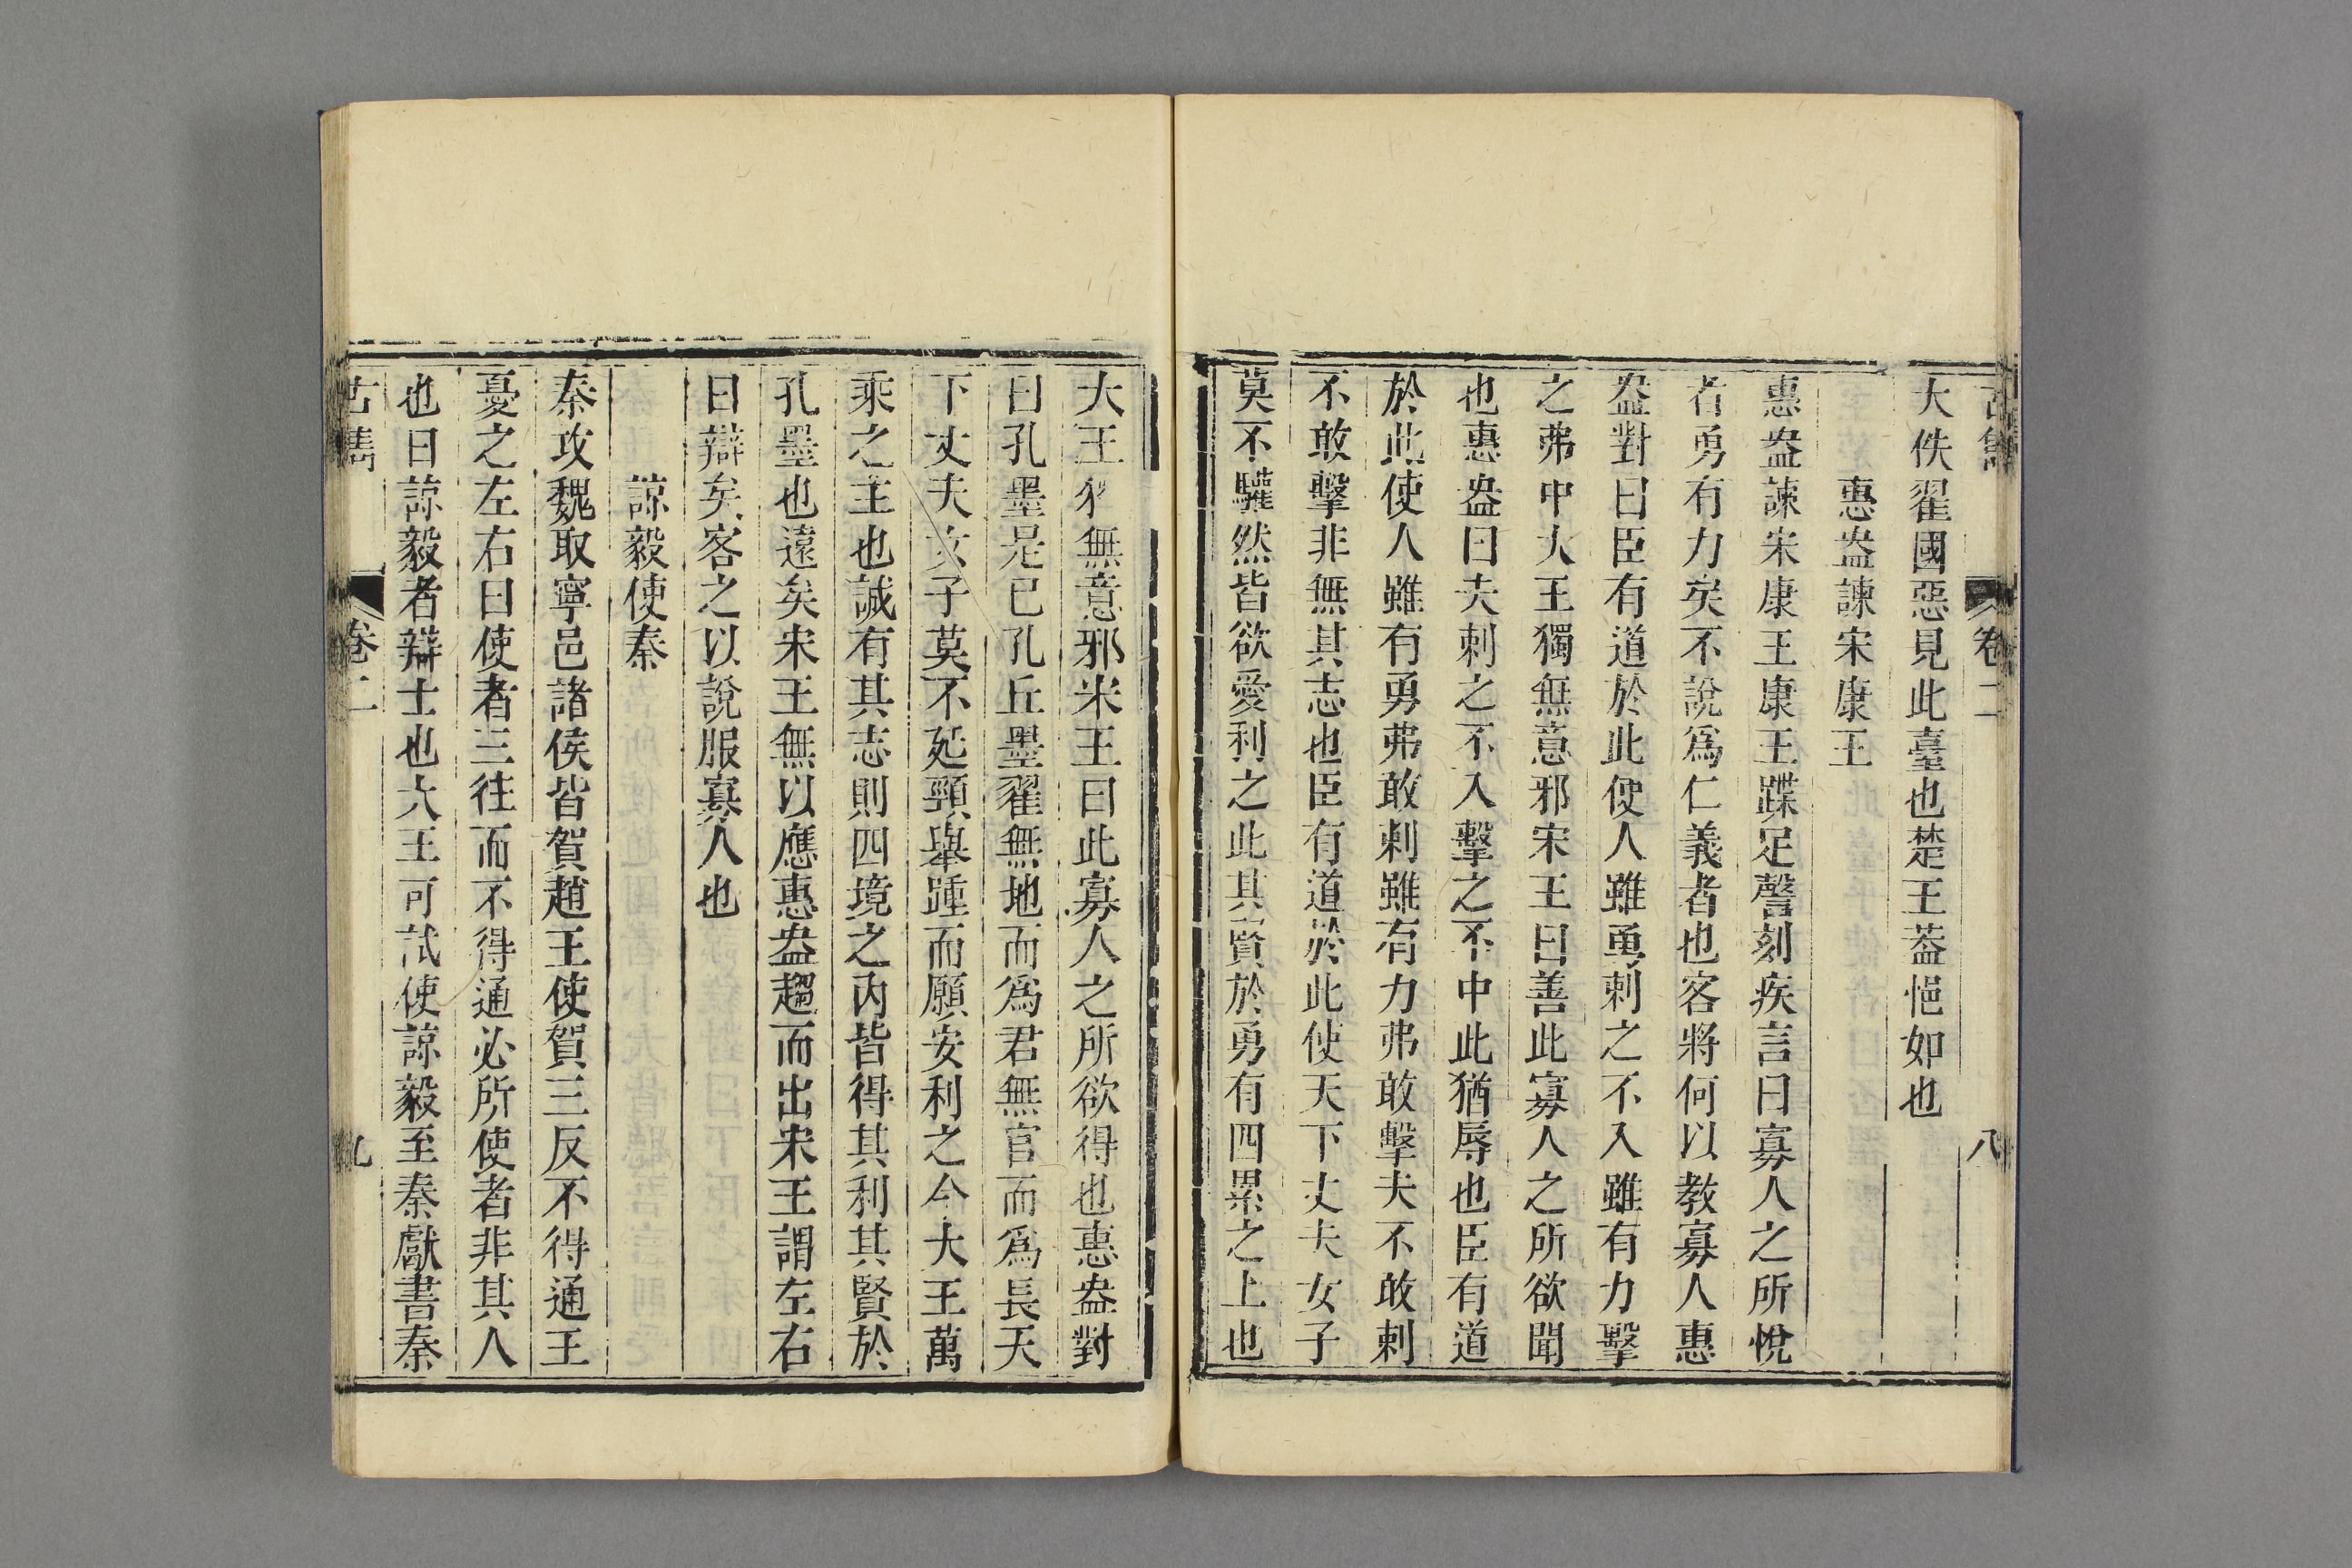 古雋 卷二 八
大佚翟國惡見此臺也楚王葢悒如也
惠盎諫宋康王
惠盎諫宋康王康王蹀足謦刻疾言曰寡人之所悅
者勇有力矣不說爲仁義者也客將何以教寡人惠
盎對曰臣有道於此使人雖勇刺之不入雖有力擊
之弗中大王獨無意邪宋王曰善此寡人之所欲聞
也惠盎曰夫刺之不入擊之不中此猶辱也臣有道
於此使人雖有勇弗敢刺雖有力弗敢擊夫不敢刺
不敢擊非無其志也臣有道於此使天下丈夫女子
莫不驩然皆欲愛利之此其賢於勇有四累之上也
大王無意邪米王曰此寡人之所欲得也惠盎對
曰孔墨是已孔丘墨翟無地而爲君無官而爲長天
下丈夫女子莫不延頸舉踵而願安利之今大王萬
乘之主也誠有其志則四境之內皆得其利其賢於
孔墨也遠矣宋王無以應惠盎趨而出宋王謂左右
曰辯矣客之以說服寡人也
諒毅使秦
秦攻魏取寧邑諸侯皆賀趙王使賀三反不得通王
憂之左右曰使者三往而不得通必所使者非其人
也曰諒毅者辯士也大王可試使諒毅至秦獻書秦
古雋 卷二 九